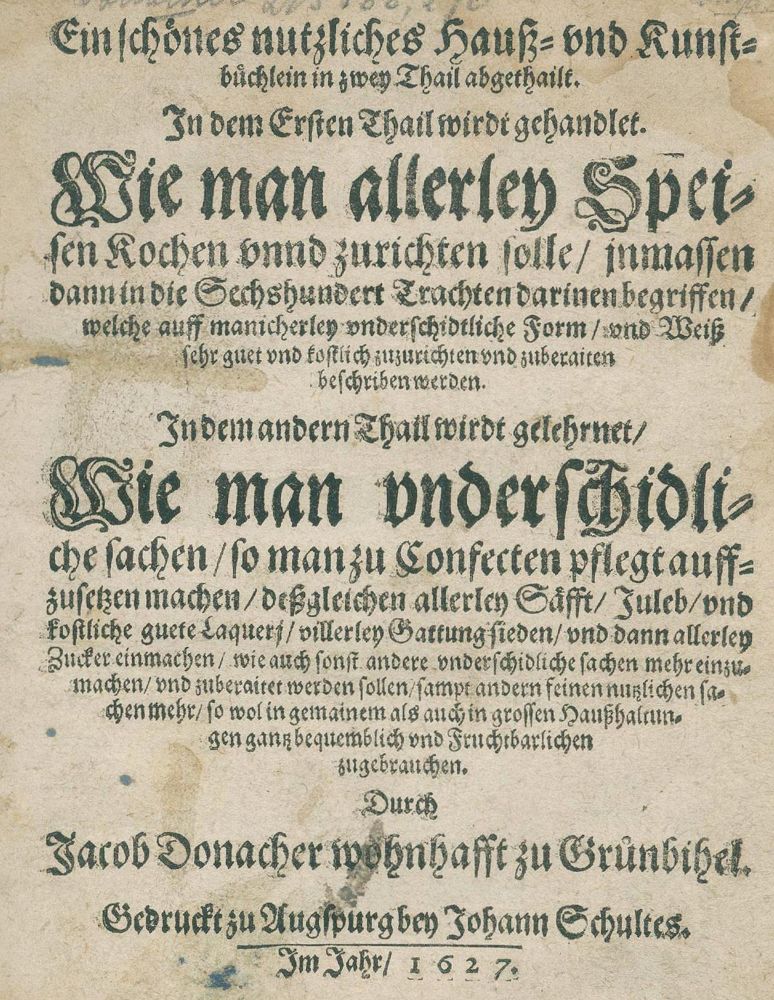 Ein schönes nutzliches Hauß= vnd Kunst=
büchlein in zwey Thail abgethailt.
In dem Ersten Thail wirdt gehandlet.
Wie man allerley Spei=
sen Kochen vnnd zurichten solle/ jnmassen
dann in die Sechshundert Trachten darinen begriffen/
welche auff manicherley vnderschidtliche Form/ vnd Weiß
sehr guet vnd kostlich zuzurichten vnd zuberaiten
beschriben werden.
In dem andern Thail wirdt gelehrnet/
Wie man vnderschidli=
che sachen/ so man zu Confecten pflegt auff=
zusetzen machen/ deßgleichen allerley Säfft/ Juleb/ vnd
kostliche guete Laquerj/ villerley Gattung sieden/ vnd dann allerley
Zucker einmachen/ wie auch sonst andere vnderschidliche sachen mehr einzu=
machen/ vnd zuberaitet werden sollen/ sampt andern feinen nutzlichen sa=
chen mehr/ so wol in gemainem als auch in grossen Haußhaltun=
gen gantz bequemblich vnd Fruchtbarlichen
zugebrauchen.
Durch
Jacob Donacher wohnhafft zu Grünbihel.
Gedruckt zu Augspurg bey Johann Schultes.
Im Jahr/ 1627.